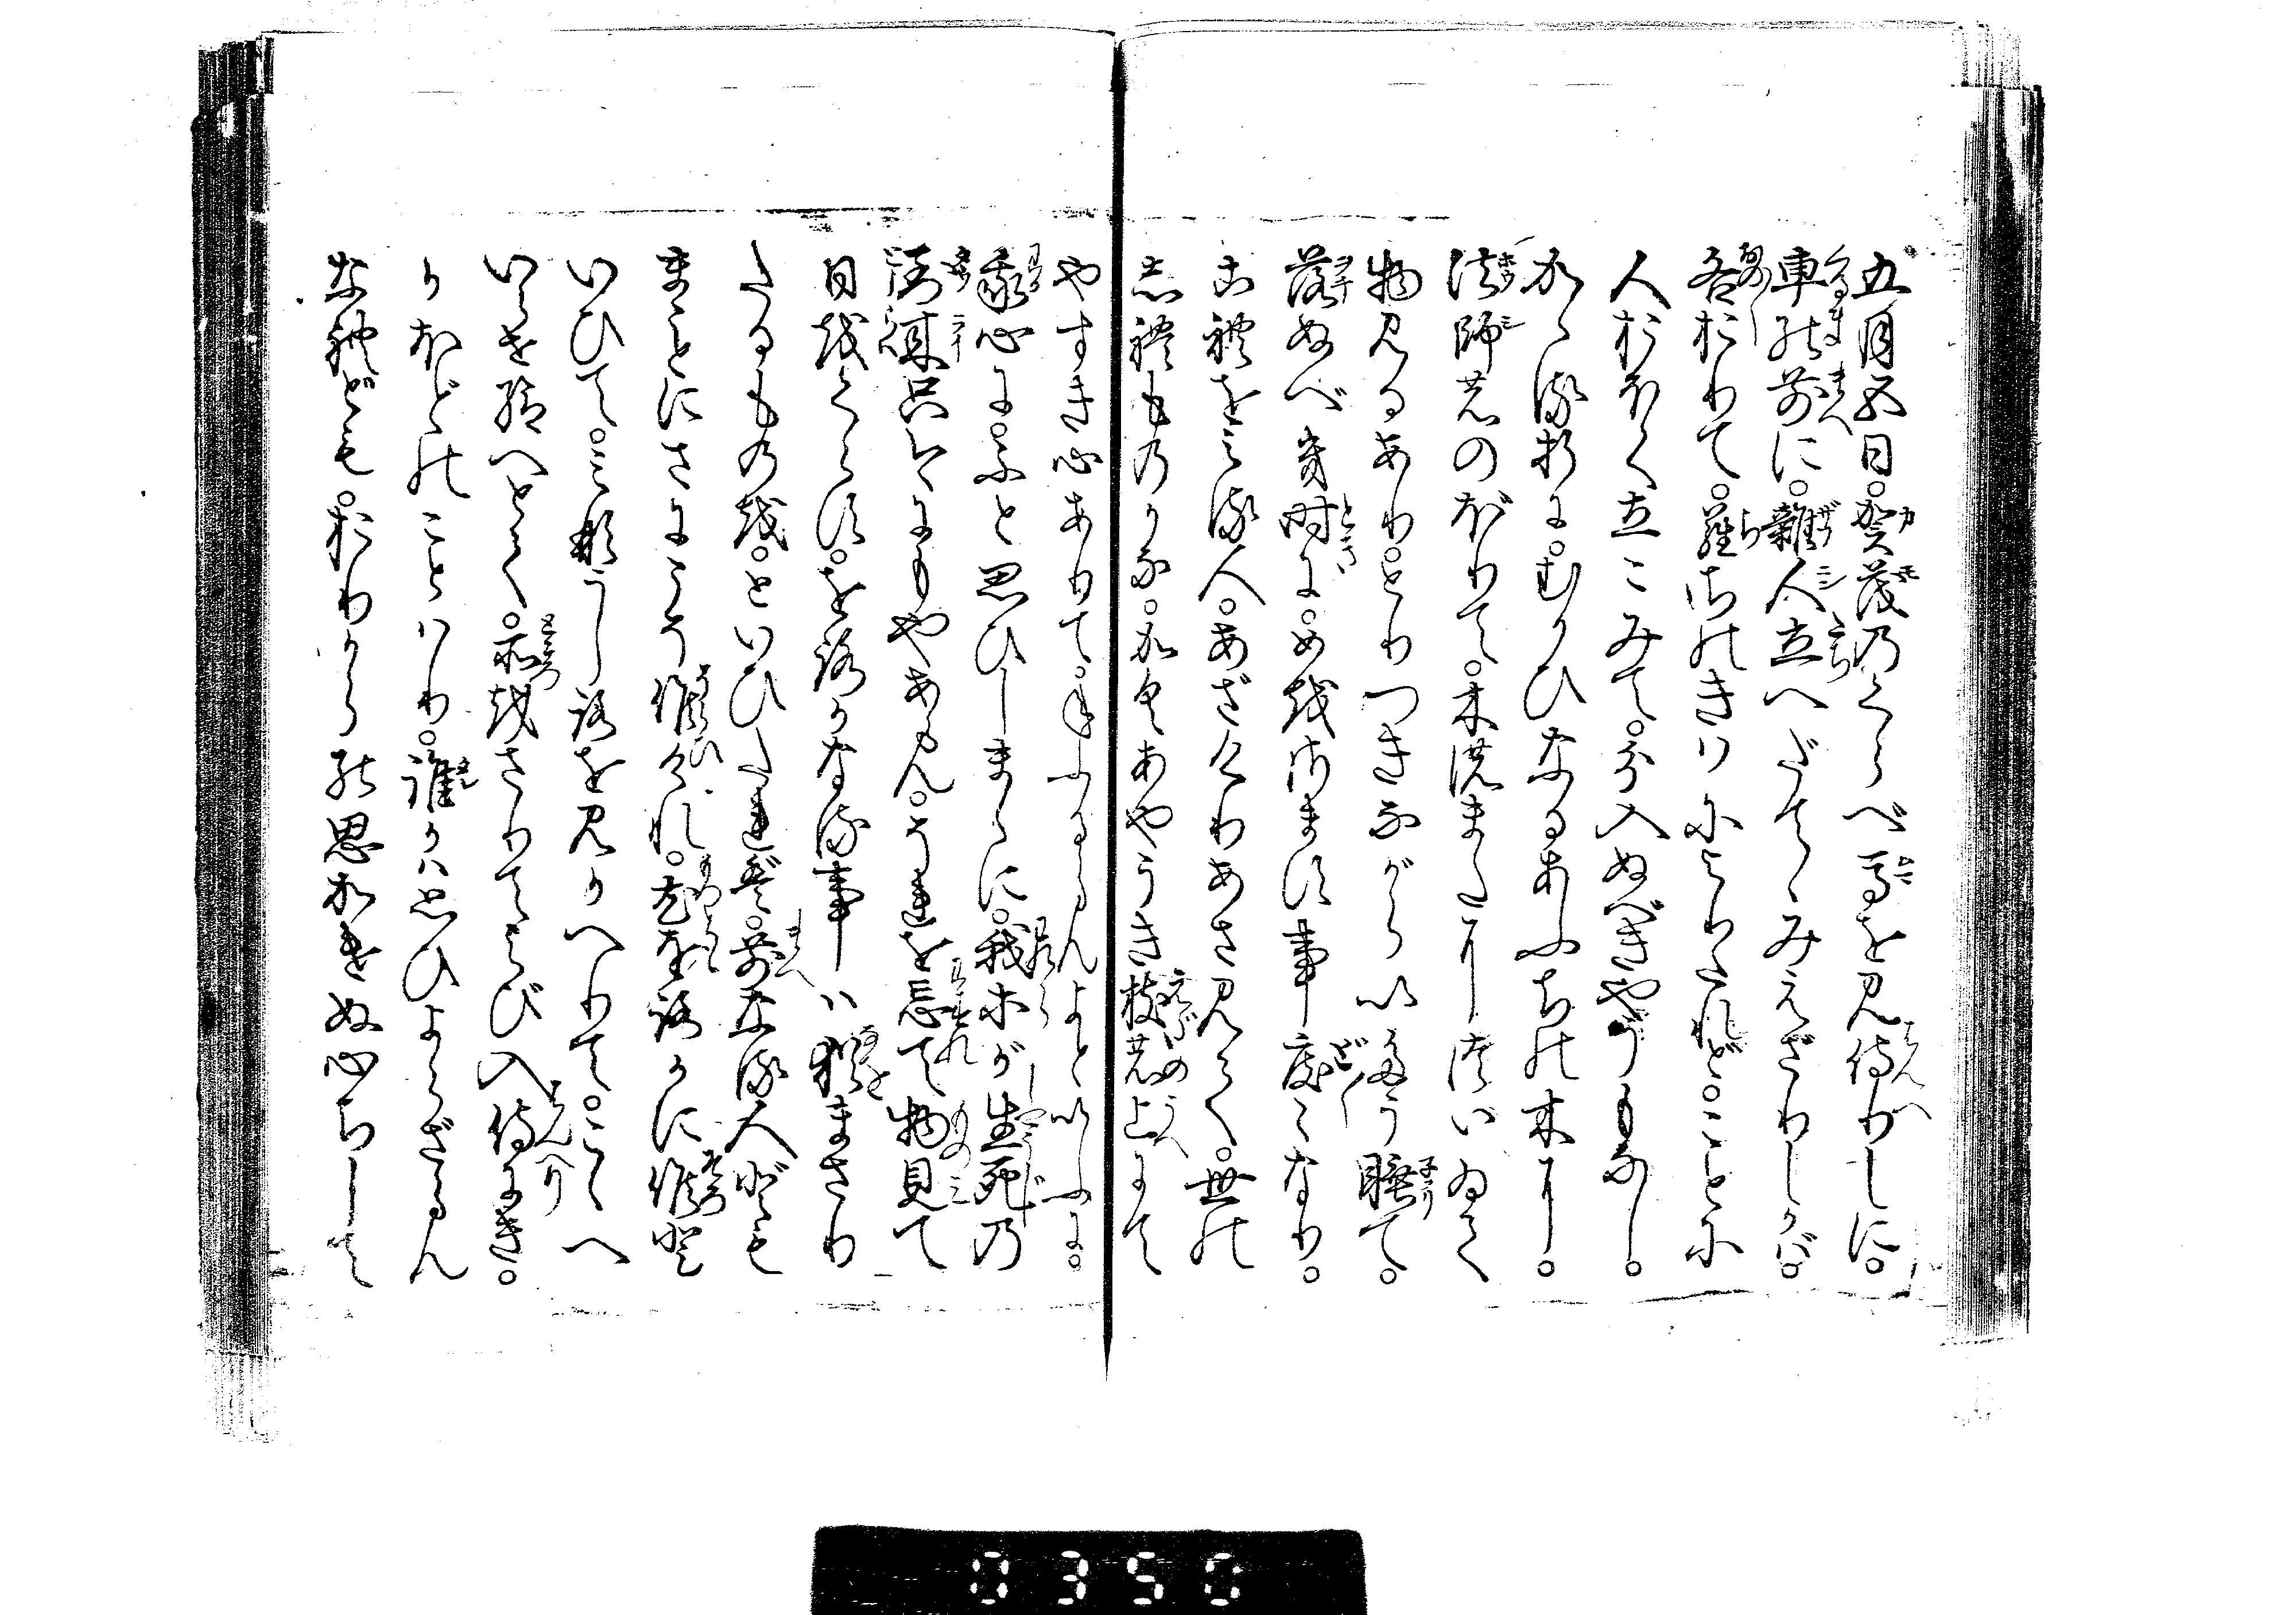 五月五日。賀茂のくらべ馬を見侍りしに。
車の前に。雑人立へだてゝみえざりしかば。
各おりて。埒のきはによりたれど。ことに
人おほく立こみて。分入ぬべきやうもなし。
かゝる折に。むかひなるあふちの木に。
法師ののぼりて。木のまたについゐて
物見るあり。とりつきながらいたう睡て。
落ぬべき時に。めをさます事度々なり。
これをみる人。あざけりあさみて。世の
しれものかな。かくあやうき枝の上にて
やすき心ありて。ねふるらんよといふに。
我心に。ふと思ひしまゝに。我等が生死の
到来只今にもやあらん。それを忘て物見て
日をくらす。をろかなる事ハ猶まさり
たるものを。といひたれば。前なる人ども
まことにさにこそ候けれ。尤をろかに候と
いひて。みなうしろを見かへりて。こゝへ
いらせ給へとて。所をさりてよび入侍にき。
かほどのことハり。誰かハ思ひよらざらん
なれども。おりからの思かけぬ心ちして
0350